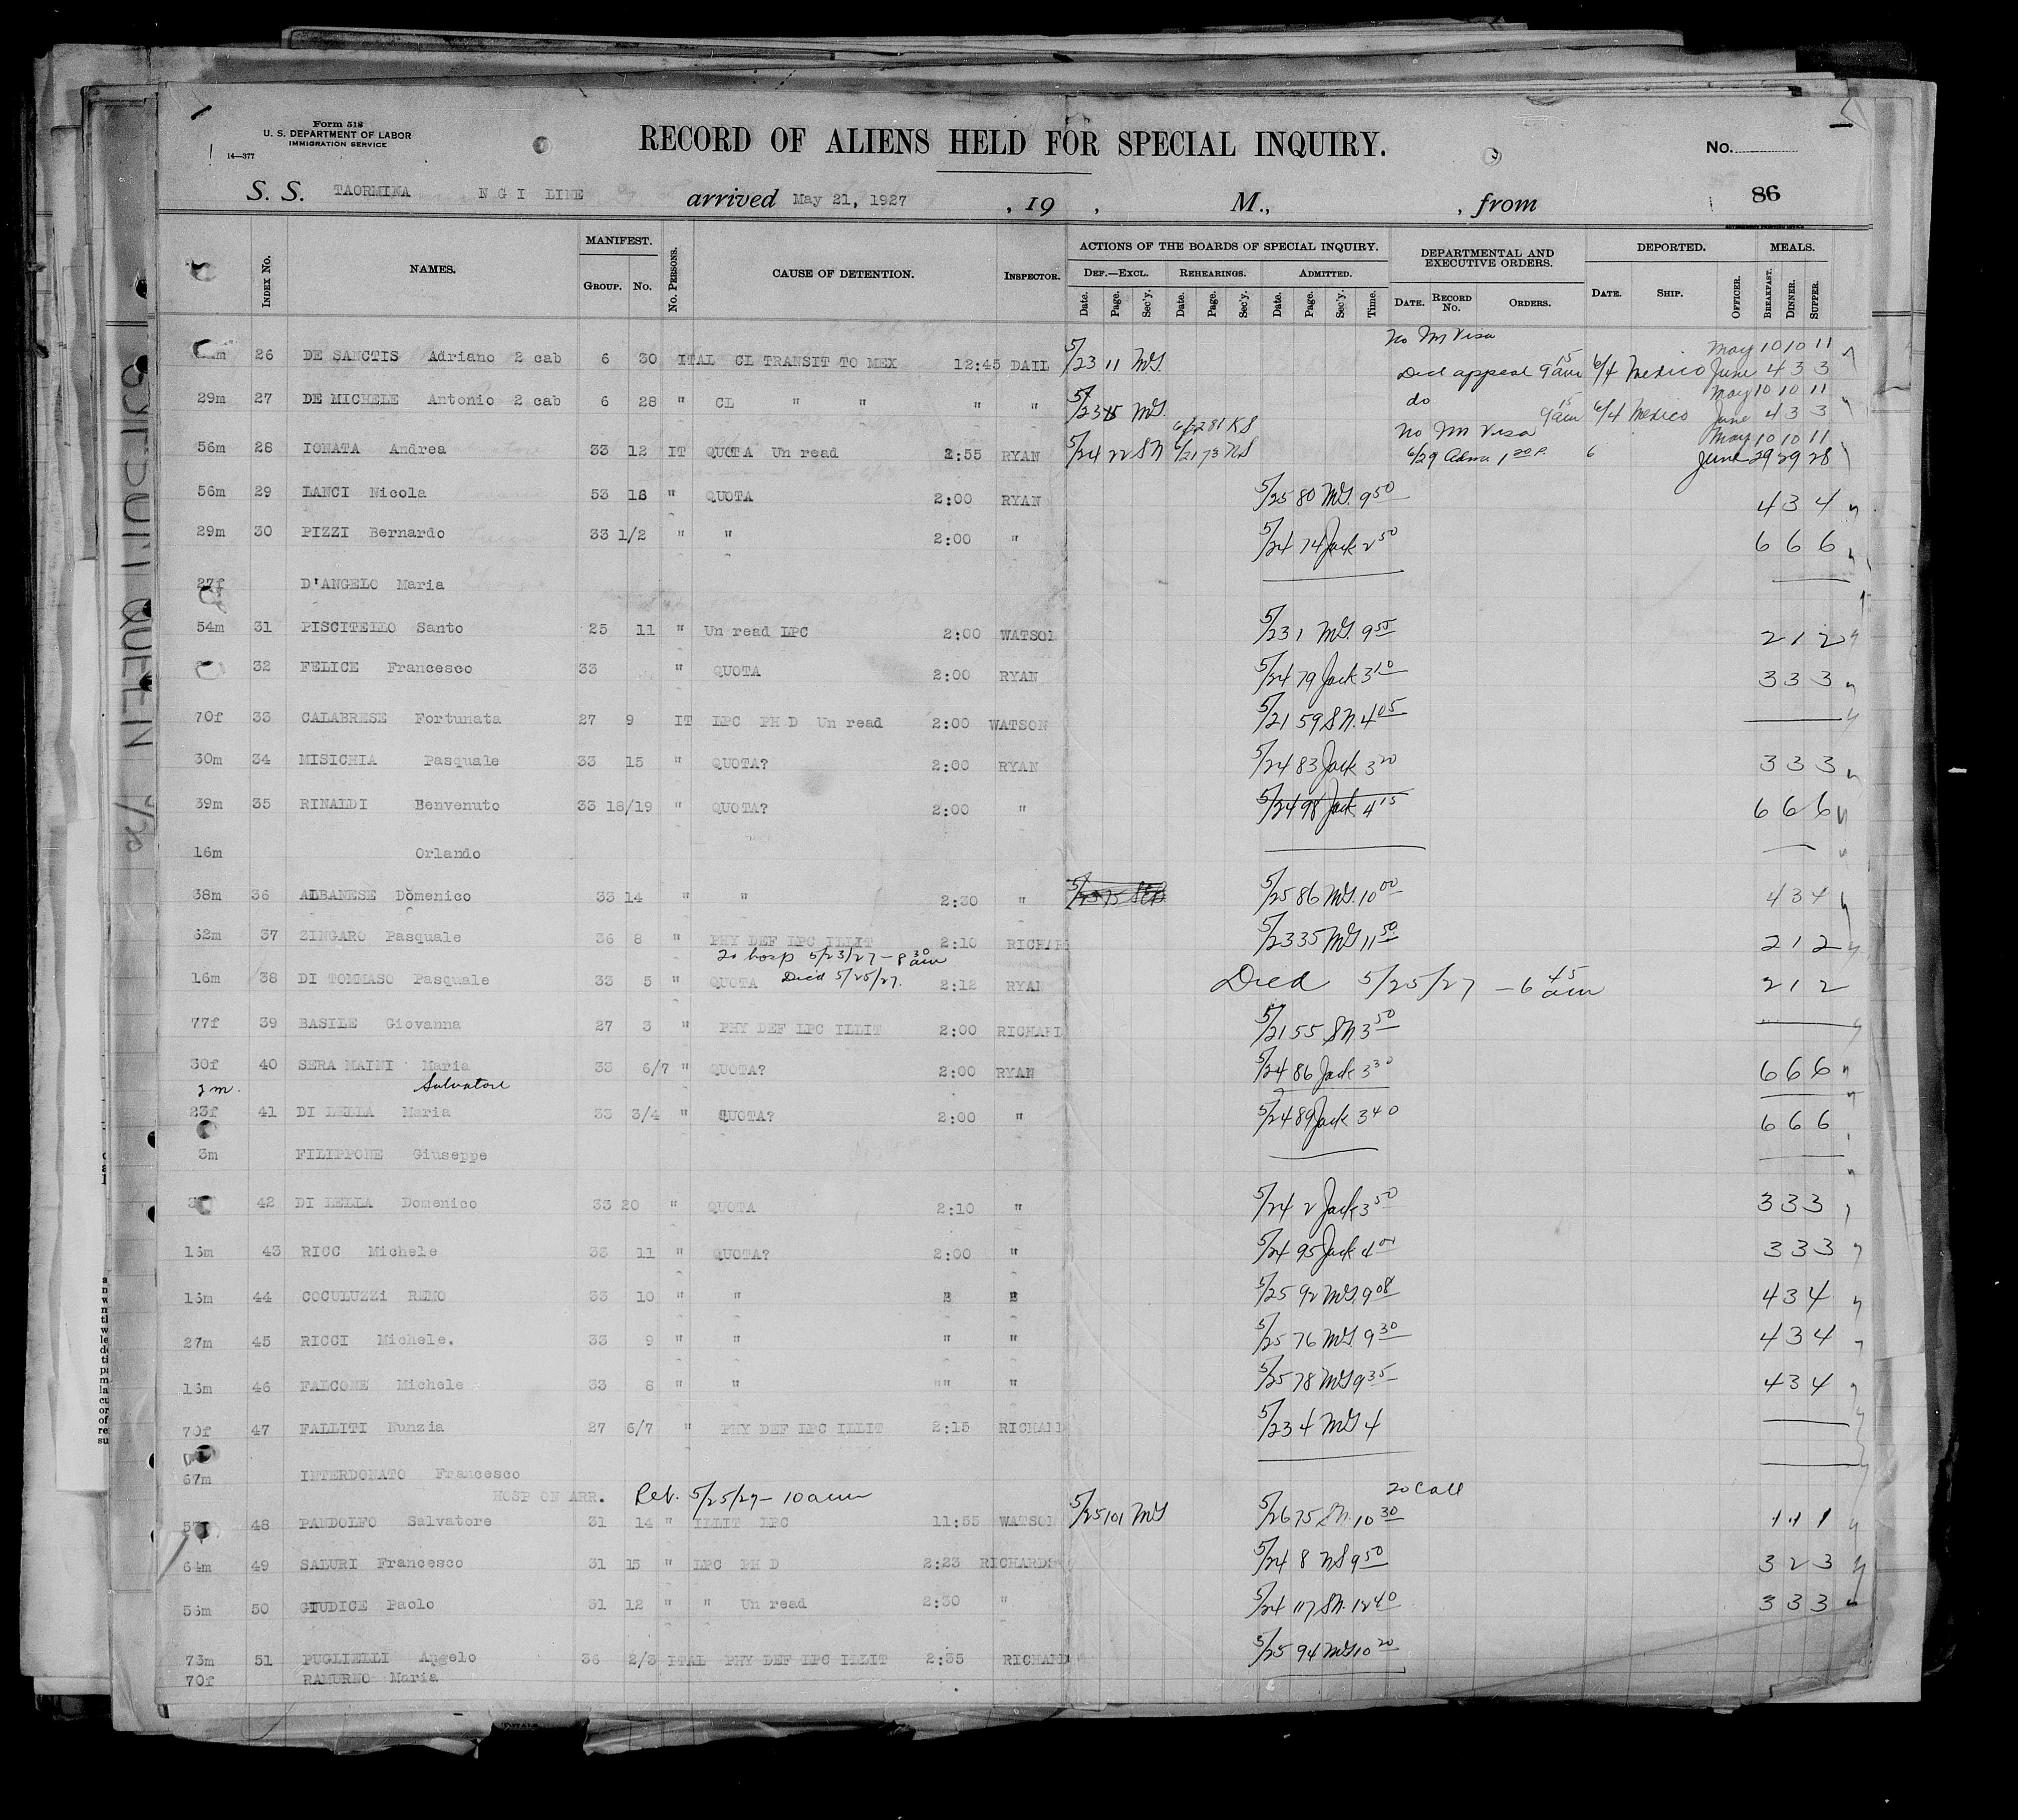 Form 518
U. S. DEPARTMENT OF LABOR
IMMIGRATION SERVICE
14—377
RECORD OF ALIENS HELD FOR SPECIAL INQUIRY.
No.
S. S. TAORMINA N G I LINE arrived May 21, 1927 , 19 , M., , from 86
INDEX NO. NAMES. MANIFEST. GROUP. NO. NO. PERSONS. CAUSE OF DETENTION. INSPECTOR. ACTIONS OF THE BOARDS OF SPECIAL INQUIRY. DEPARTMENTAL AND EXECUTIVE ORDERS. DEPORTED. MEALS.
DEF.—EXCL. REHEARINGS. ADMITTED.
Date. Page. Sec'y. Date. Page. Sec'y. Date. Page. Sec'y. Time. DATE. RECORD NO. ORDERS. DATE. SHIP. OFFICER. BREAKFAST. DINNER. SUPPER.
No Im Visa May 10 10 11
26 DE SANCTIS Adriano 2 cab 6 30 ITAL CL TRANSIT TO MEX 12:45 DAIL 5/23 11 MG Dcd appeal 9 15 am 6/4 Mexico June 4 3 3
do May 10 10 11
29m 27 DE MICHELE Antonio 2 cab 6 28 " CL " " " " 5/23 15 MG 9 15 am 6/4 Mexico June 4 3 3
No Im Visa May 10 10 11
56m 28 IONATA Andrea 33 12 IT QUOTA Un read 2:55 RYAN 5/24 22 SN 6/29 Adm 1 20 P. 6 June 29 29 28
56m 29 LANCI Nicola 53 18 " QUOTA 2:00 RYAN 5/25 80 MG 9 50 4 3 4
29m 30 PIZZI Bernardo 33 1/2 " " 2:00 " 5/24 74 Jack 2 50 6 6 6
27f D'ANGELO Maria
54m 31 PISCITELLO Santo 25 11 " Un read LPC 2:00 WATSON 5/23 1 MG 9 55 2 1 2
32 FELICE Francesco 33 " QUOTA 2:00 RYAN 5/24 79 Jack 3 10 3 3 3
70f 33 CALABRESE Fortunata 27 9 IT LPC PH D Un read 2:00 WATSON 5/21 59 SN 4 05
30m 34 MISICHIA Pasquale 33 15 " QUOTA? 2:00 RYAN 5/24 83 Jack 3 20 3 3 3
39m 35 RINALDI Benvenuto 33 18/19 " QUOTA? 2:00 " 5/24 98 Jack 4 15 6 6 6
16m Orlando
38m 36 ALBANESE Domenico 33 14 " " 2:30 " 5/25 86 MG 10 00 4 3 4
62m 37 ZINGARO Pasquale 36 8 " PHY DEF LPC ILLIT 2:10 RICHAR 5/23 35 MG 11 50 2 1 2
To hosp 5/23/27 - 8 30 am
16m 38 DI TOMMASO Pasquale 33 5 " QUOTA Died 5/25/27. 2:12 RYAN Died 5/25/27 - 6 45 am 2 1 2
77f 39 BASILE Giovanna 27 3 " PHY DEF LPC ILLIT 2:00 RICHARD 5/21 55 SN 3 50
30f 40 SERA MAINI Maria 33 6/7 " QUOTA? 2:00 RYAN 5/24 86 Jack 3 30 6 6 6
Salvatore
23f 41 DI LELLA Maria 33 3/4 " QUOTA? 2:00 " 5/24 89 Jack 3 40 6 6 6
3m FILIPPONE Giuseppe
42 DI LELLA Domenico 33 20 " QUOTA 2:10 " 5/24 2 Jack 3 50 3 3 3
16m 43 RICC Michele 33 11 " QUOTA? 2:00 " 5/24 95 Jack 4 3 3 3
16m 44 COCULUZZi REMO 33 10 " " 5/25 92 MG 9 08 4 3 4
27m 45 RICCI Michele. 33 9 " " " " 5/25 76 MG 9 30 4 3 4
16m 46 FALCONE Michele 33 8 " " "" " 5/25 78 MG 9 35 4 3 4
70f 47 FALLITI Nunzia 27 6/7 " PHY DEF LPC ILLIT 2:15 RICHARD 5/23 4 MG 4
67m INTERDONATO Francesco
HOSP ON ARR. Ret. 5/25/27 - 10 am To Call
48 PANDOLFO Salvatore 31 14 " ILLIT LPC 11:55 WATSON 5/25 101 MG 5/26 75 SN 10 30 1 1 1
64m 49 SALURI Francesco 31 15 " LPC PH D 2:23 RICHARDS 5/24 8 NS 9 50 3 2 3
56m 50 GIUDICE Paolo 31 12 " " Un read 2:30 " 5/24 117 SN 12 40 3 3 3
73m 51 PUGLIELLI Angelo 36 2/3 ITAL PHY DEF LPC ILLIT 2:35 RICHARD 5/25 94 MG 10 20
70f RAMURNO Maria